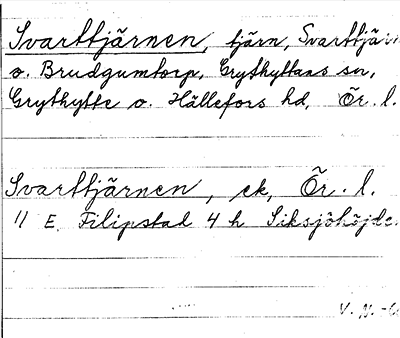 Svarttjärnen, tjärn, Svarttjärn
o. Brudgumtorp, Grythyttans sn,
Grythytte o. Hällefors hd, Ör. l.
Svarttjärnen, ek, Ör. l.
11 E Filipstad 4 h Siksjöhöjde
V. N.